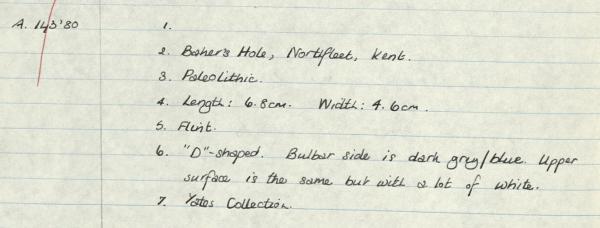 A. 143'80 1.
2. Baker's Hole, Northfleet, Kent.
3. Paleolithic.
4. Length: 6.8cm. Width: 4.6cm.
5. Flint.
6. "D"-shaped. Bulbar side is dark grey/blue. Upper
surface is the same but with a lot of white.
7. Yates Collection.